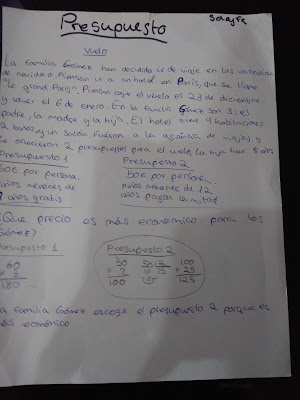 Soraya
Presupuesto
Vuelo
La familia Gómez han decidido ir de viaje en las vacaciones
de navidad. Piensan ir a un hotel en París, que se llama
"le grand París". Piensan coger el vuelo el 23 de diciembre
y volver el 6 de enero. En la familia Gómez son 3: el
padre, la madre y la hija. El hotel tiene 4 habitaciones
2 baños y un salón. Fueron a la agencia de viajes y
le ofrecieron 2 presupuestos para el vuelo, la hija tiene 8 años
Presupuesto 1
60€ por persona.
niños menores de
años gratis
Presupuesto 2
50€ por persona.
niños menores de 12
años pagan la mitad
¿Que precio es más economico para los
Gómez?
Presupuesto 1
60
3
180
Presupuesto 2
50
x 2
100
50 12
10 25
100
+ 25
125
La familia Gómez escoge el presupuesto 2 porque es
más económico